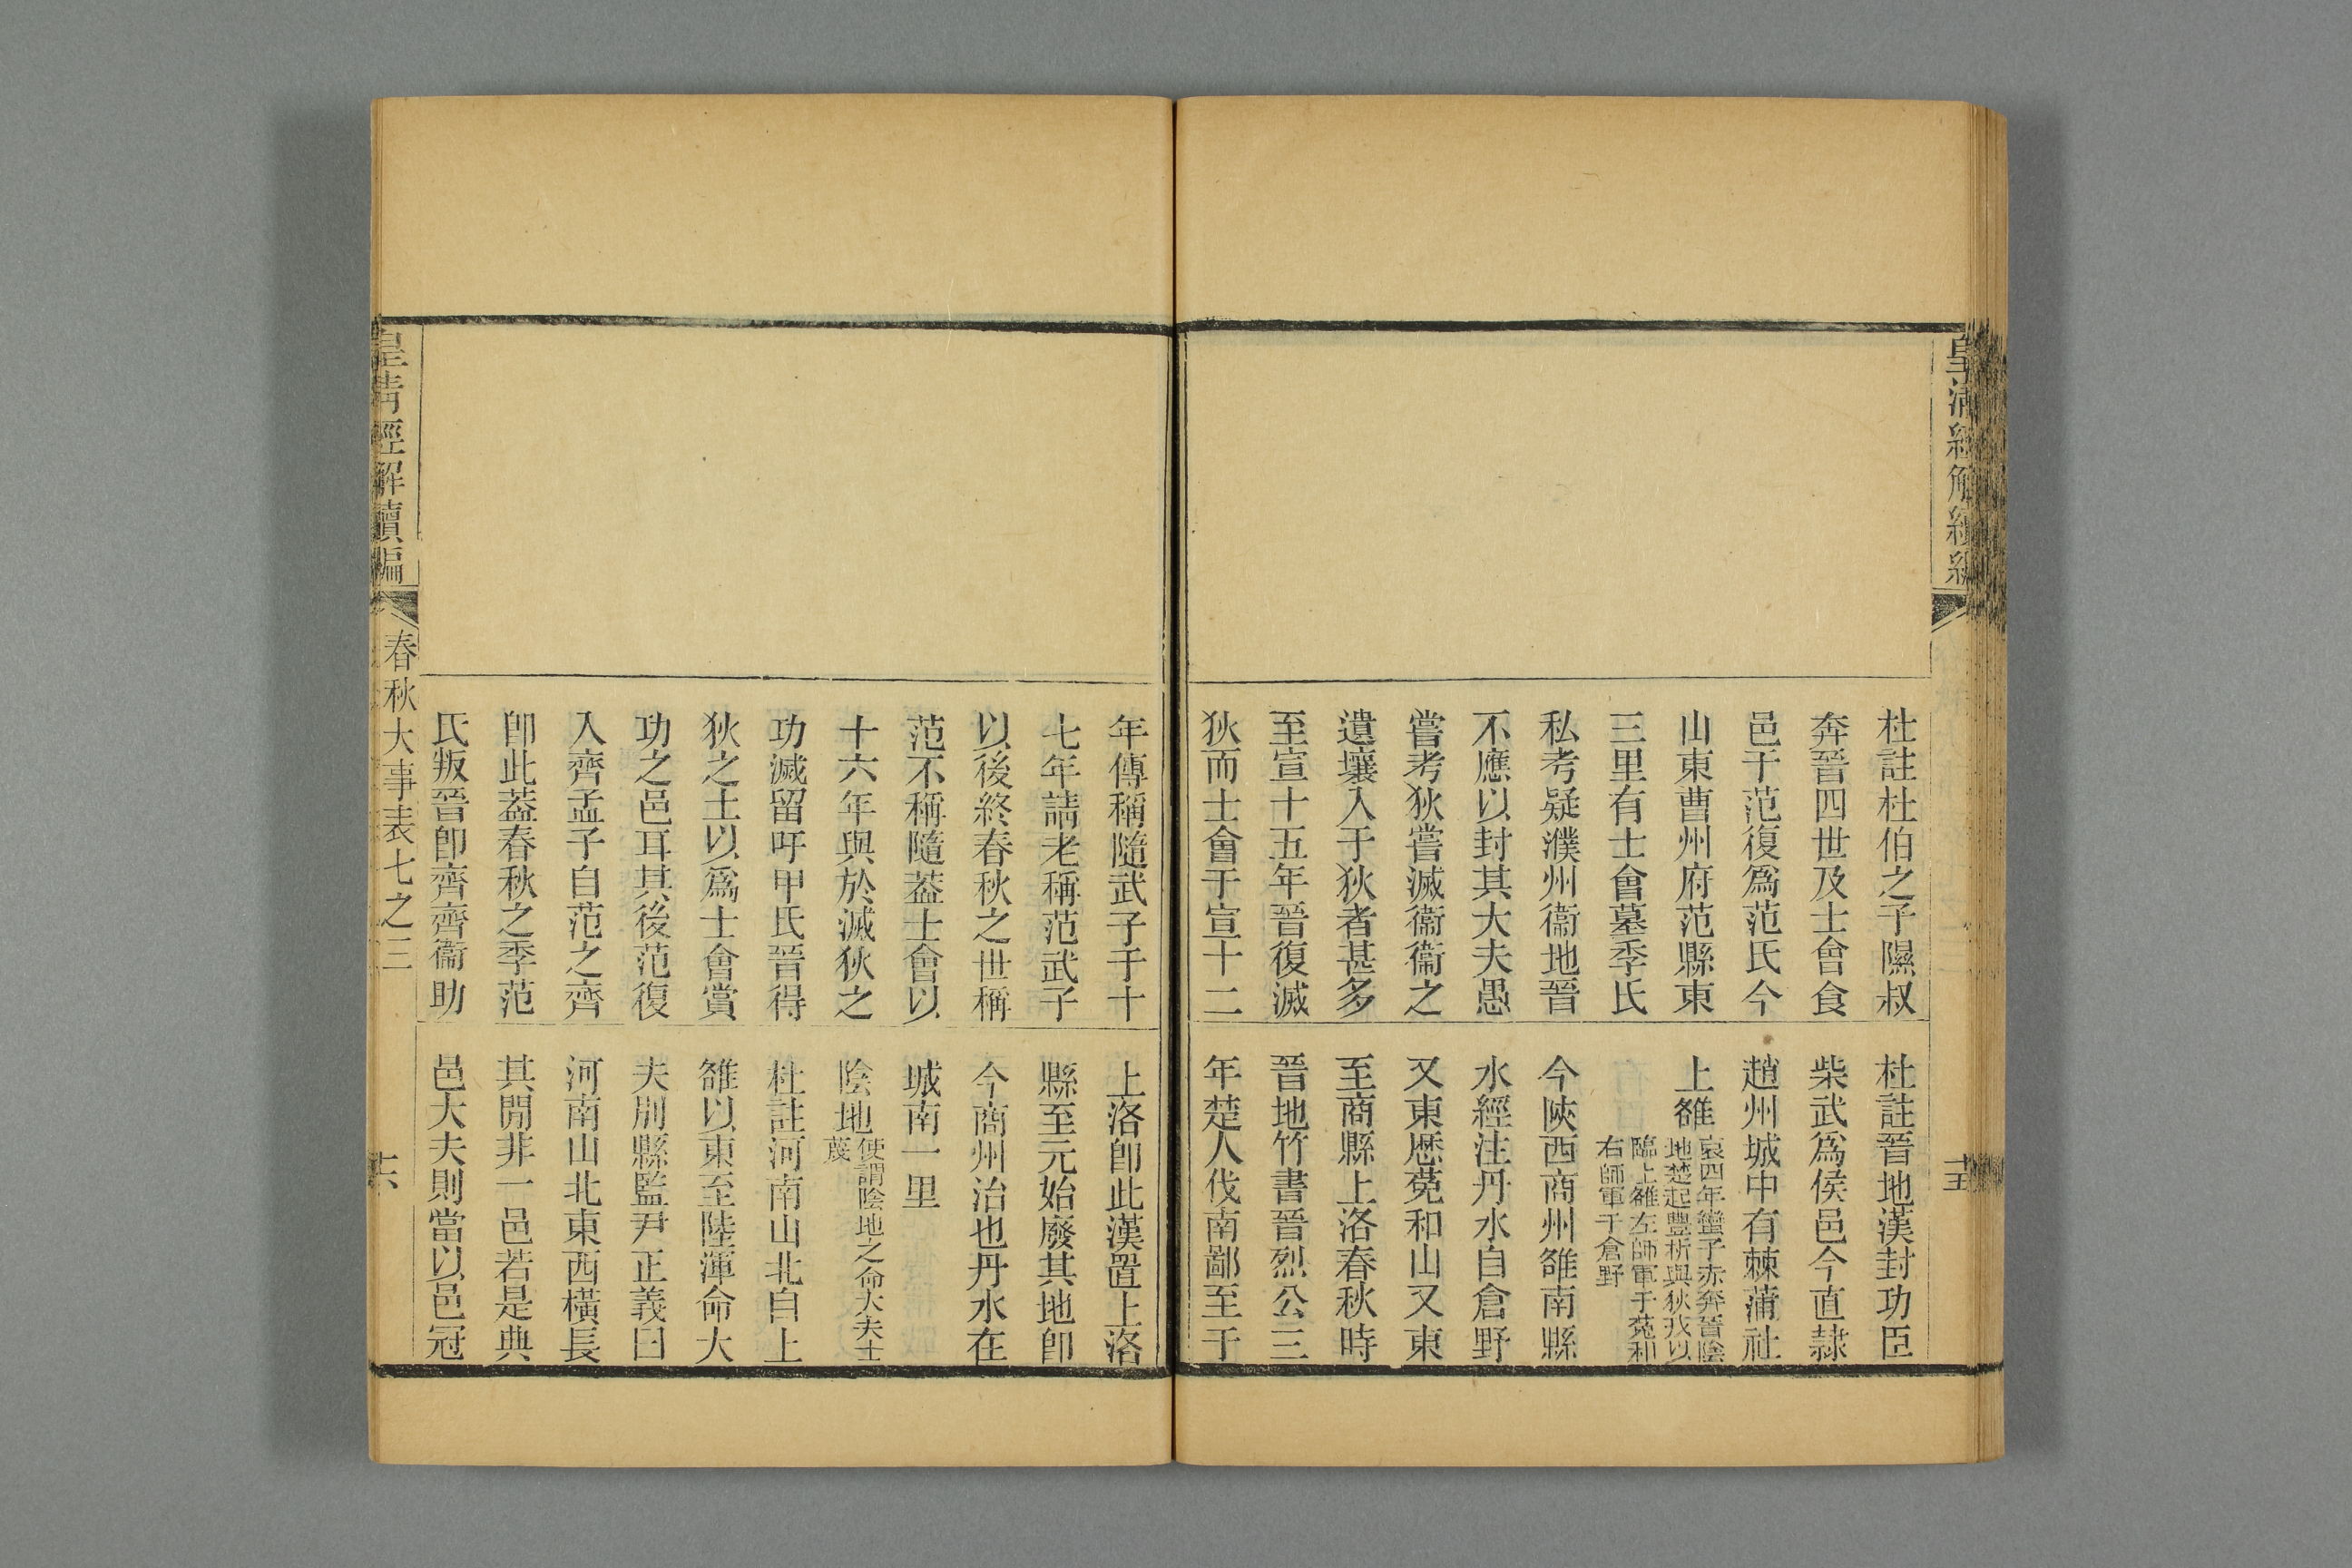 皇清經解續編
十五
杜註杜伯之子隰叔
奔晉四世及士會食
邑于范復爲范氏今
山東曹州府范縣東
三里有士會墓季氏
私考疑濮州衞地晉
不應以封其大夫愚
嘗考狄嘗滅衞衞之
遺壤入于狄者甚多
至宣十五年晉復滅
狄而士會于宣十二
杜註晉地漢封功臣
柴武爲侯邑今直隸
趙州城中有棘蒲社
上雒
哀四年蠻子赤奔晉陰
地楚起豐析與狄戎以
臨上雒左師軍于菟和
右師軍于倉野
今陝西商州雒南縣
水經注丹水自倉野
又東歴菟和山又東
至商縣上洛春秋時
晉地竹書晉烈公三
年楚人伐南鄙至于
年傳稱隨武子于十
七年請老稱范武子
以後終春秋之世稱
范不稱隨葢士會以
十六年與於滅狄之
功滅留吁甲氏晉得
狄之土以爲士會賞
功之邑耳其後范復
入齊孟子自范之齊
卽此葢春秋之季范
氏叛晉卽齊齊衞助
上洛卽此漢置上洛
縣至元始廢其地卽
今商州治也丹水在
城南一里
陰地
使謂陰地之命大夫士
蔑
杜註河南山北自上
雒以東至陸渾命大
夫別縣監尹正義曰
河南山北東西橫長
其閒非一邑若是典
邑大夫則當以邑冠
皇清經解續編
春秋大事表七之三
十六